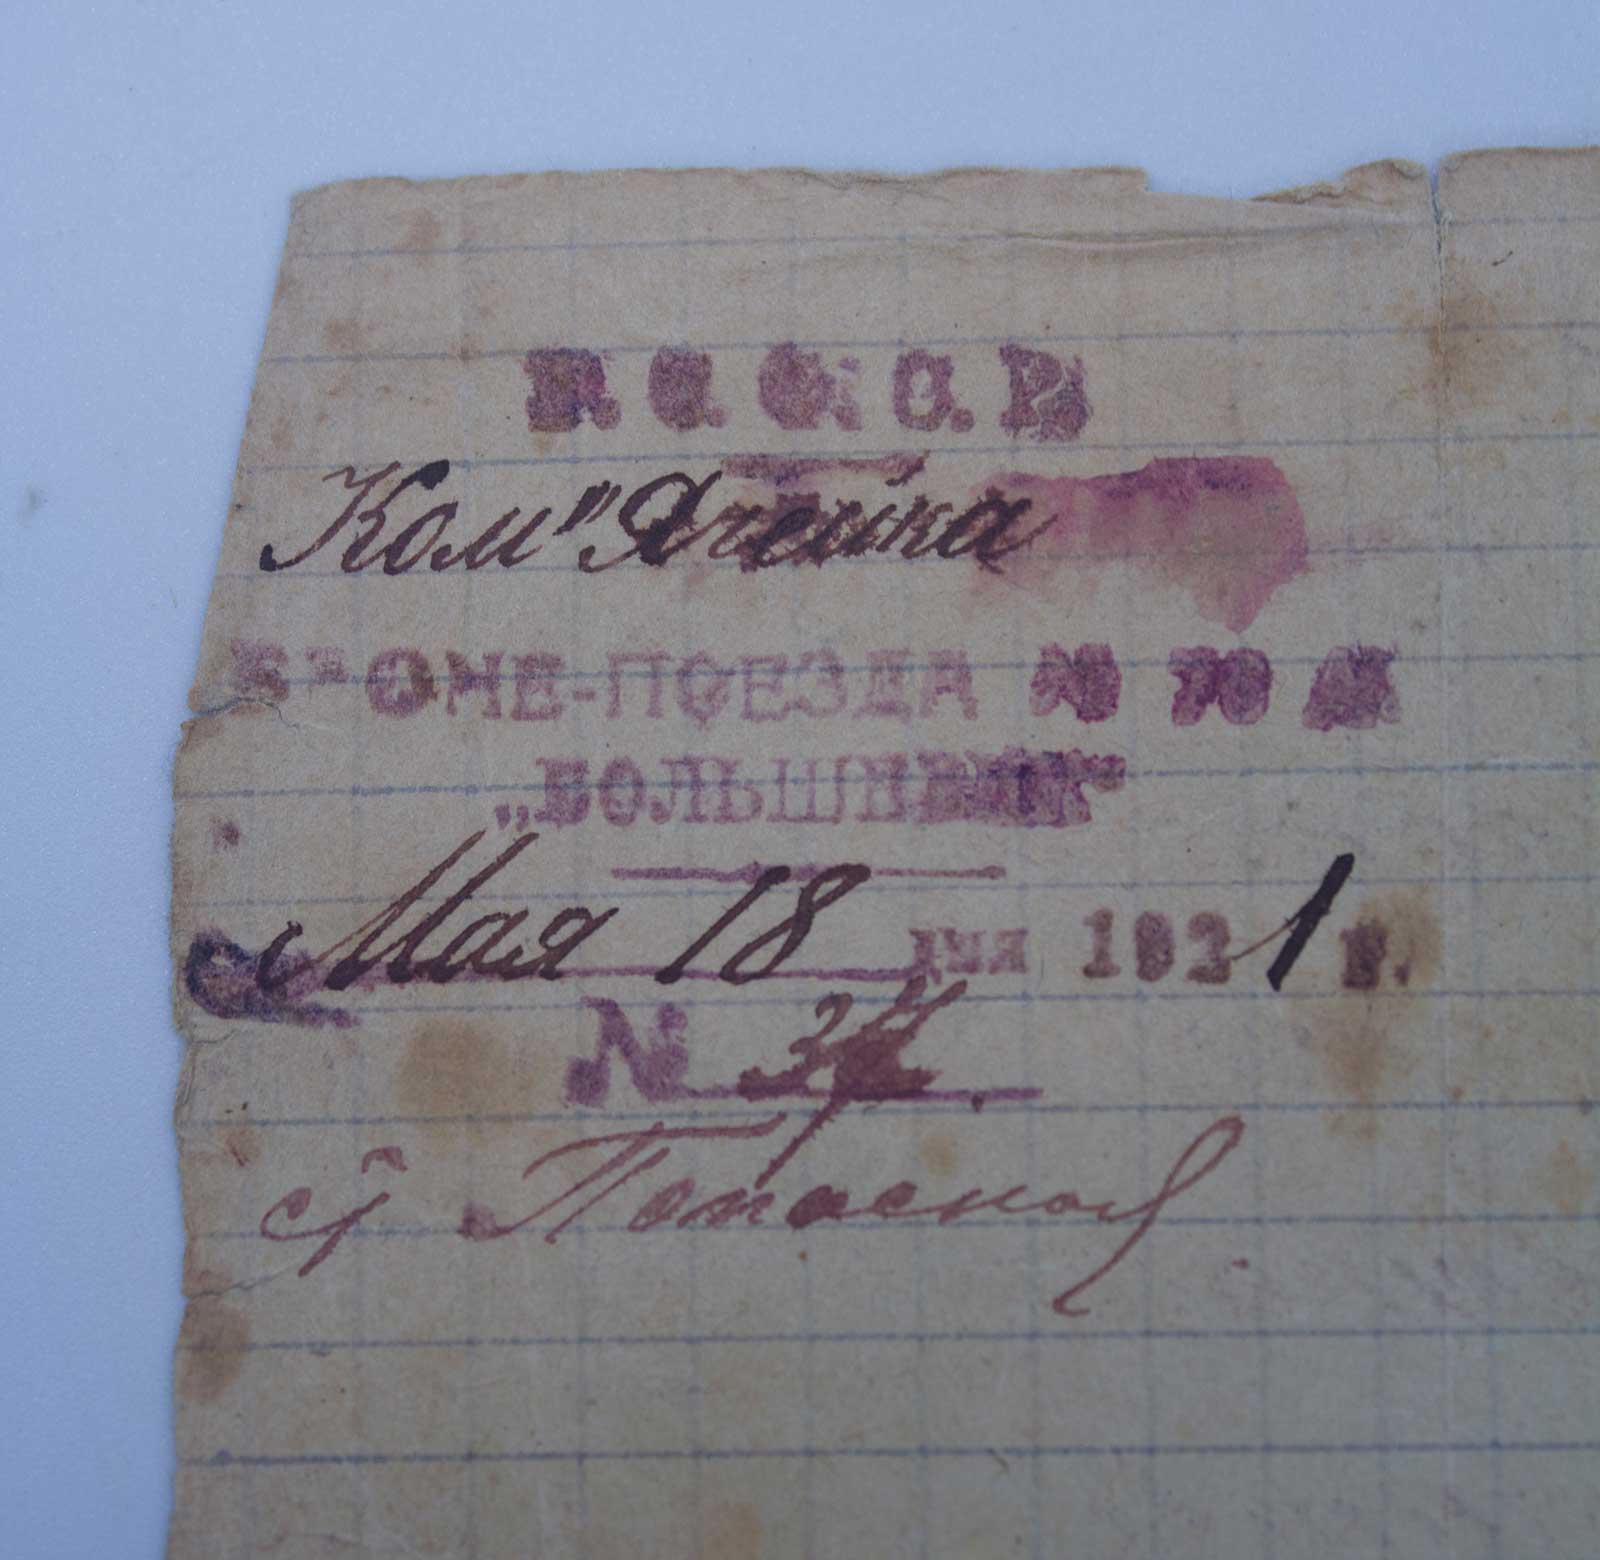 Р. С. Ф. С. Р
Ком" Ячейка
БРОНЕ-ПОЕЗДА №
„БОЛЬШЕВИК"
Мая 18 дня 1921 г.
N 34
ст Попасная